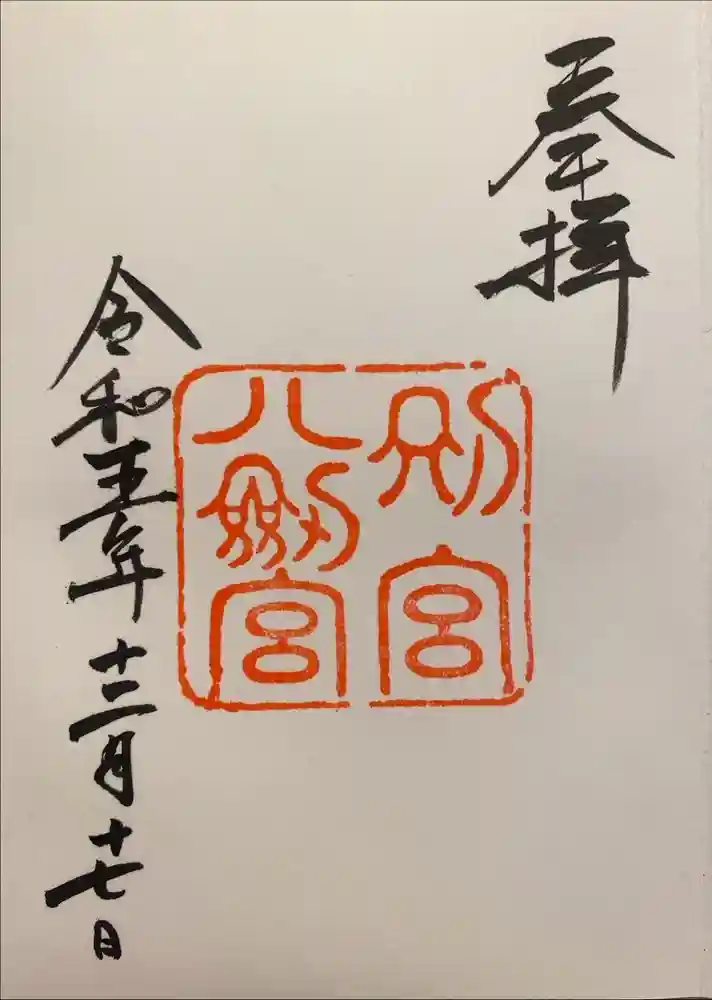 奉拝
別宮
八剱宮
令和五年十二月十七日